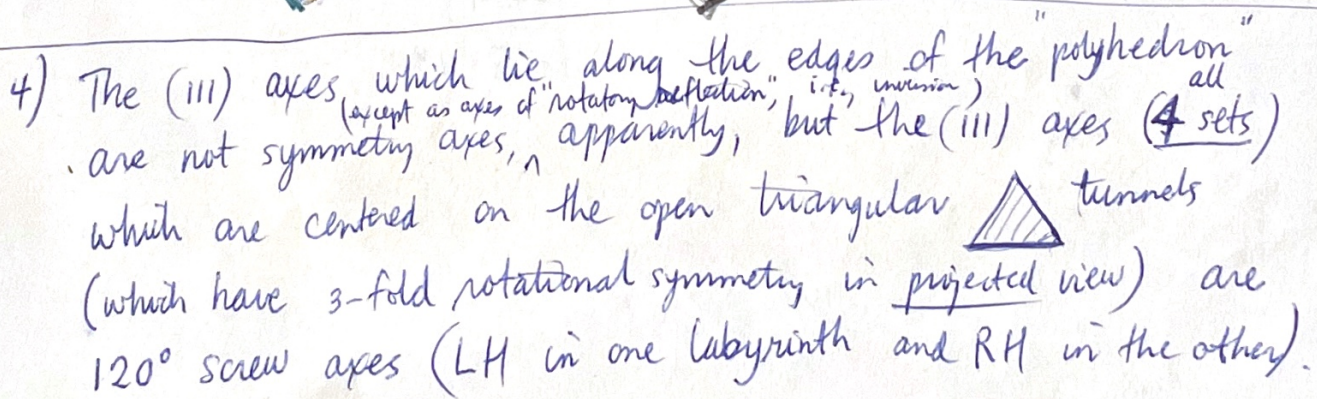 4) The (111) axes, which lie along the edges of the "polyhedron"
(except as axes of "rotatory reflection", i.e., inversion)
are not symmetry axes, ^ apparently, but the (111) axes (all 4 sets)
which are centered on the open triangular tunnels
(which have 3-fold rotational symmetry in projected view) are
120° screw axes (LH in one labyrinth and RH in the other).